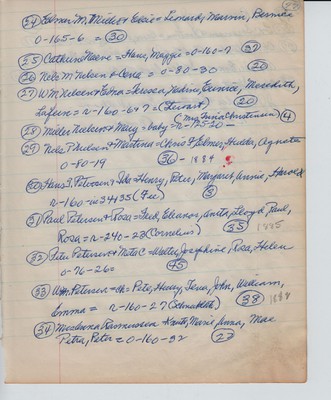 (24) Elmer M. Miller + Elsie = Leonard, Marvin, Bernice
0-165-6 = (30)
(25) Cathrine Neeve = Hans, Maggie = 0-160-7 (32)
(26) Nels M Nelson + Lena = 0-80-30 (20)
(27) W.M. Nelson + Edna = Nadine, Eunice, Meredith,
Laferne = r-160-6+7 = (Stewart) (20)
(28) Miller Nielsen + Mary = baby = r-175-20 -
(Mrs. Tina Christensen) (4)
(29) Nels P. Nielsen + Martinea = Chris + Elmer, Hulda, Agneta
0-80-19 (36) - 1884
(30) Hans P. Petersen + Ida = Henry, Peter, Margaret, Annie, Harold
r-160- in 34+35 (Fee) (3)
(31) Paul Petersen + Rosa = Fred, Eleanor, Anita, Lloyd, Paul,
Rosa = r-240-28 (Cornelius) (35) 1885
(32) Peter Petersen + Meta C = Walter, Josephine, Rosa, Helen
0-76-26 = (45)
(33) Wm. Petersen = Pete, Henry, Lena, John, William,
Emma = r-160-27 (38) 1882
(34) Rasmussen Knuts, Marie, Anna, Mae
Petra, Peter = 0-160-22 (27)